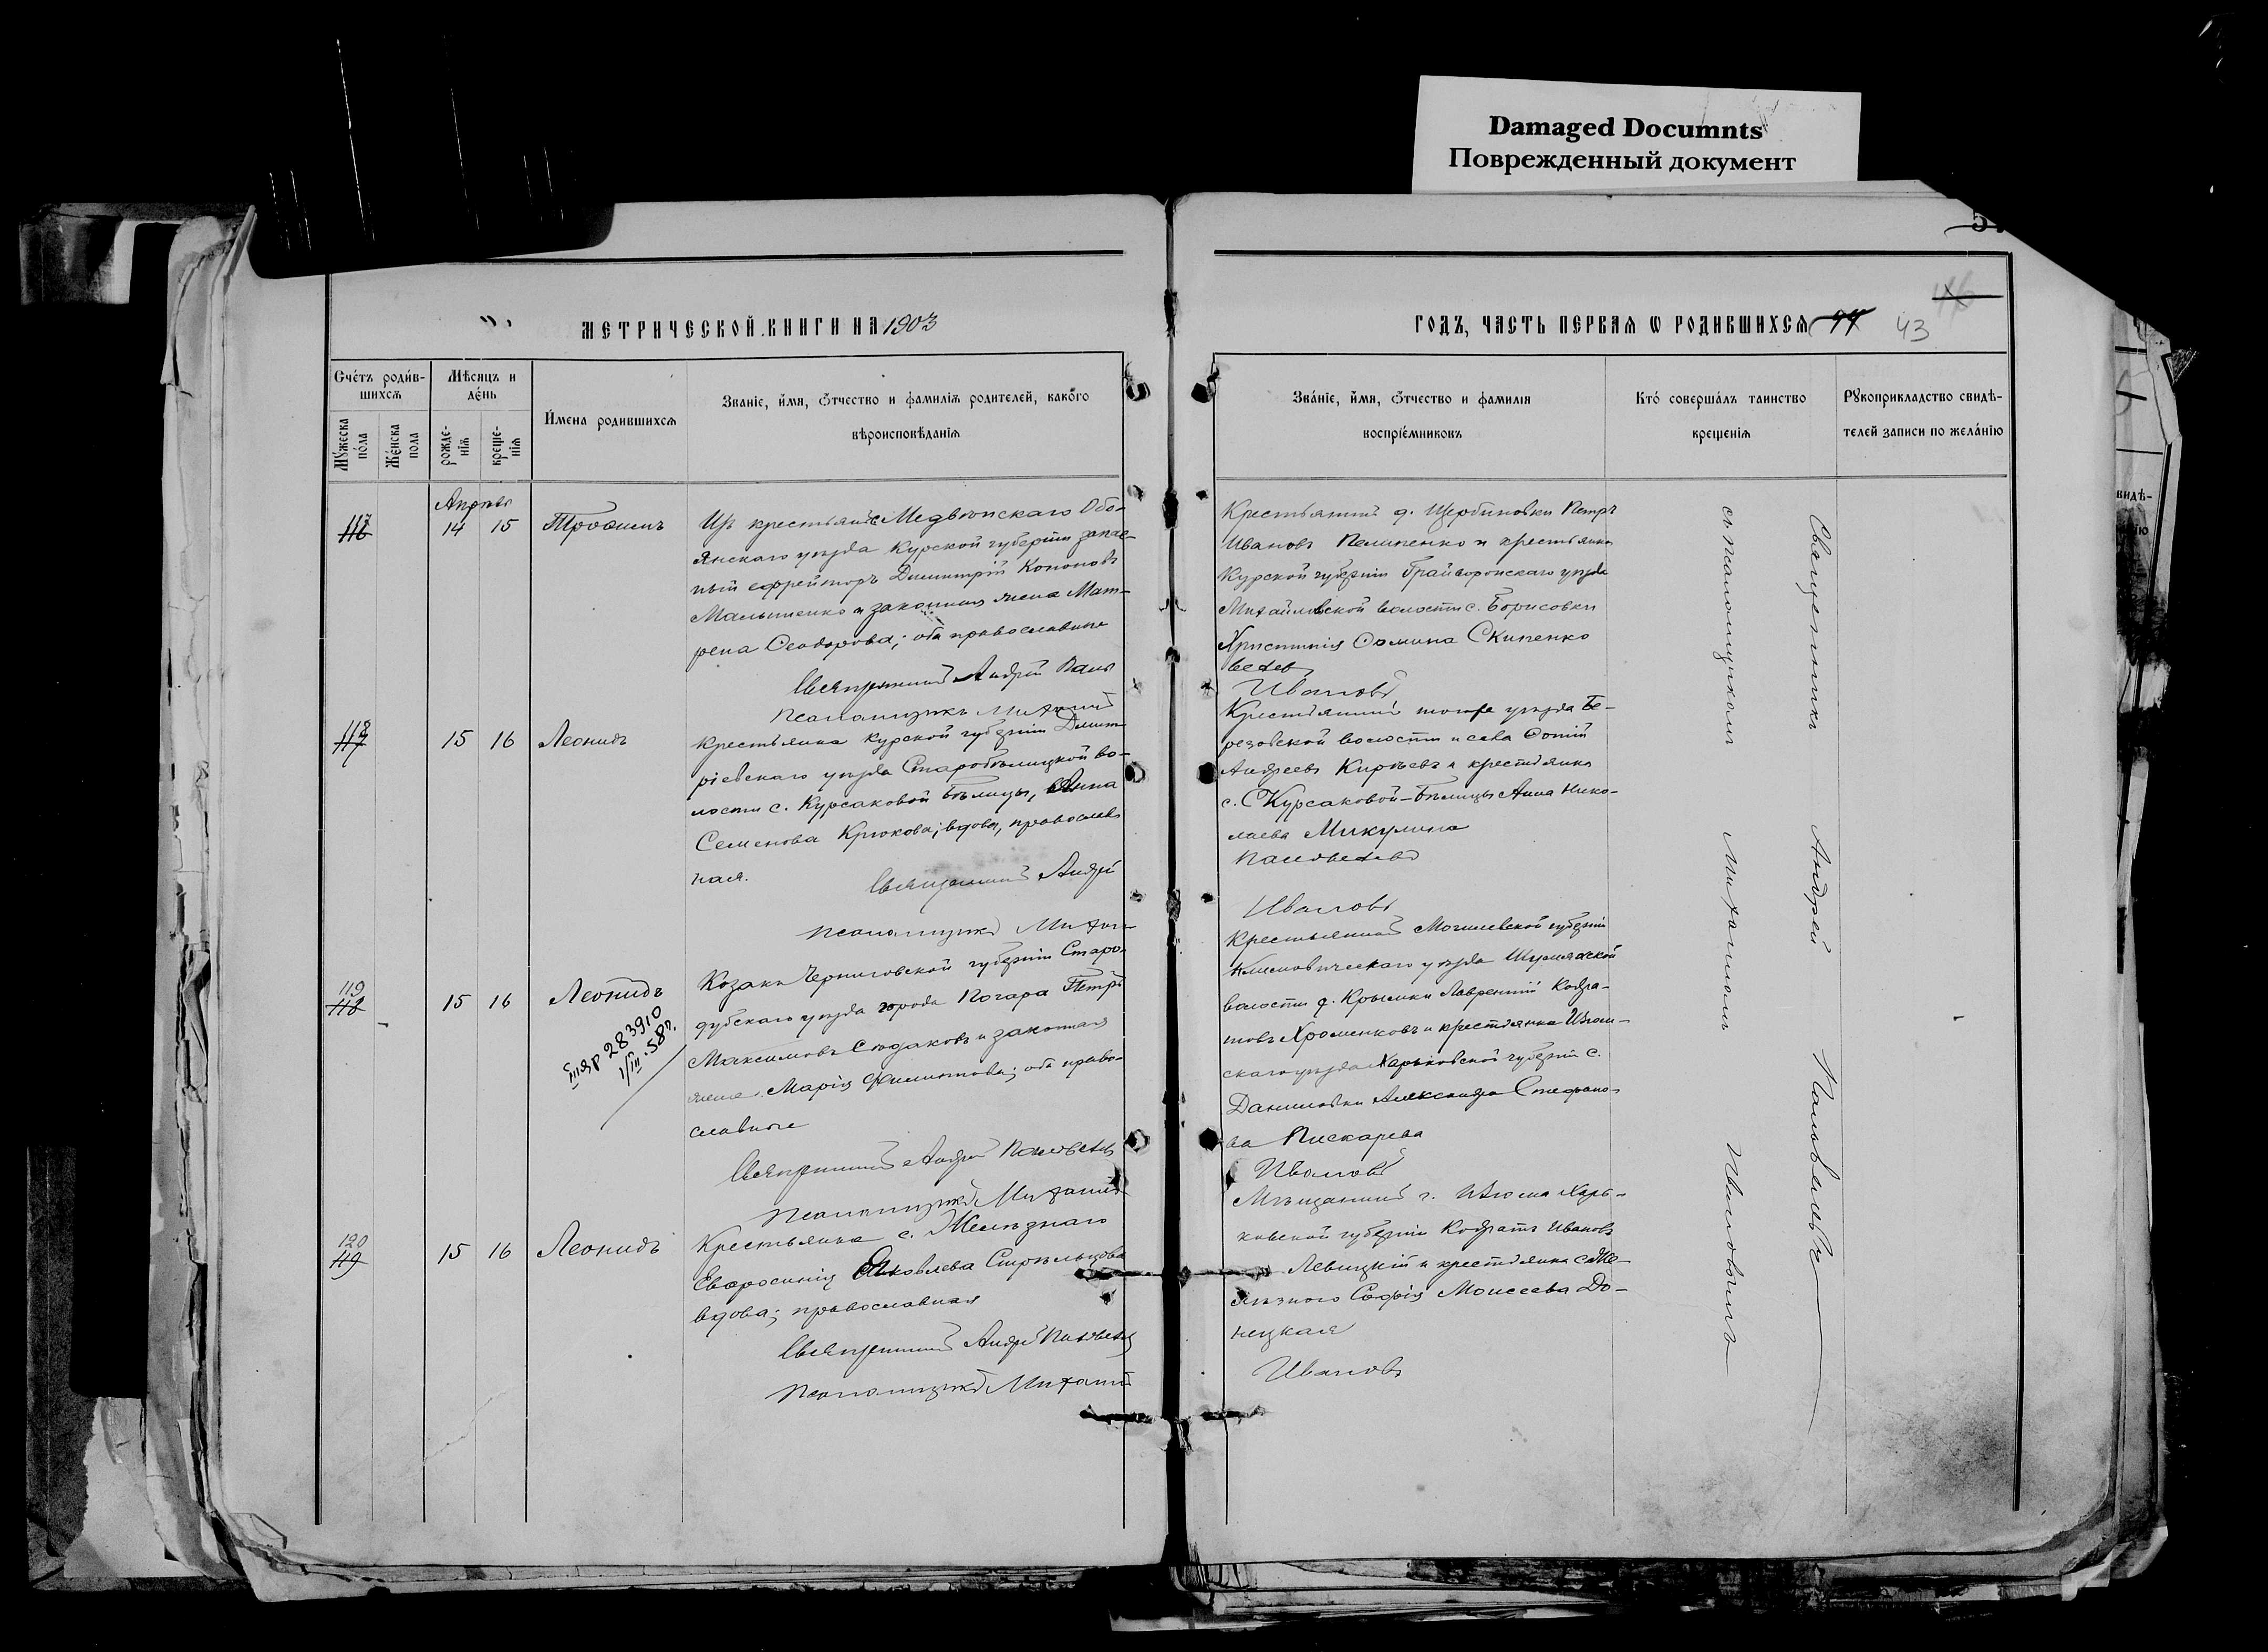 Damaged Documnts
Поврежденный документ
МЕТРИЧЕСКОЙ КНИГИ НА 1903
ГОДЪ, ЧАСТЬ ПЕРВАЯ Ѡ РОДИВШИХСЯ 43
Счетъ родив-
шихся
Мѣсяцъ и
день
Мужеска
пола
Женска
пола
рожде-
нія
креще-
нія
Имена родившихся
Званіе, имя, отчество и фамилія родителей, какого
вѣроисповѣданія
Званіе, имя, отчество и фамилія
воспріемниковъ
Кто совершалъ таинство
крещенія
Рукоприкладство свидѣ-
телей записи по желанію
Апрѣль
117
14 15
Трофимъ
Изъ крестьянъ Обо-
янскаго уѣзда Курской губерніи запас-
ный ефрейторъ Димитрій Кононовъ
и законная жена Мат-
рена Ѳеодорова; оба православные
Священникъ Андрей
Псаломщикъ Митрофанъ
Крестьянинъ д. Щербиновки Петръ
Ивановъ Пелипенко и крестьянка
Курской губерніи Грайворонскаго уѣзда
Михайловской волости с. Борисовки
Христинія Ѳомина Скипенко
Ивановъ
118
15 16
Леонидъ
Крестьянка Курской губерніи Дмит-
ріевскаго уѣзда Старобѣлицкой во-
лости с. Курсаковой Бѣлицы, Анна
Семенова Крюкова; вдова, православ
ная.
Священникъ Андрей
Псаломщикъ
Крестьянинъ того же уѣзда Бе-
резовской волости и села Фотій
Андреевъ Кирѣевъ и крестьянка
с. Курсаковой-Бѣлицы Анна Нико-
лаева Микулина
Ивановъ
119
15 16
Леонидъ
283910
1/III.58г.
Козакъ Черниговской губерніи Старо-
дубскаго уѣзда города Погара Петръ
Максимовъ и законная
жена Марія Филиппова; оба право-
славные
Священникъ Андрей
Псаломщикъ
Крестьянинъ Могилевской губерніи
Климовическаго уѣзда Шумячской
волости д. Лаврентій Кодра-
товъ Хроменковъ и крестьянка Изюм-
скаго уѣзда Харьковской губерніи с.
Даниловки Александра Стефано-
ва Пискарева
Ивановъ
120
15 16
Леонидъ
Крестьянка с. Желѣзнаго
Евфросинія Яковлева Стрѣльцова
вдова; православная
Священникъ Андрей
Псаломщикъ
Мѣщанинъ г. Изюма Харь-
ковской губерніи Кодратъ Ивановъ
Левицкій и крестьянка с. Же-
лѣзного Софія Моисеева До-
нецкая
Ивановъ
Священникъ Андрей
съ псаломщикомъ Ивановымъ